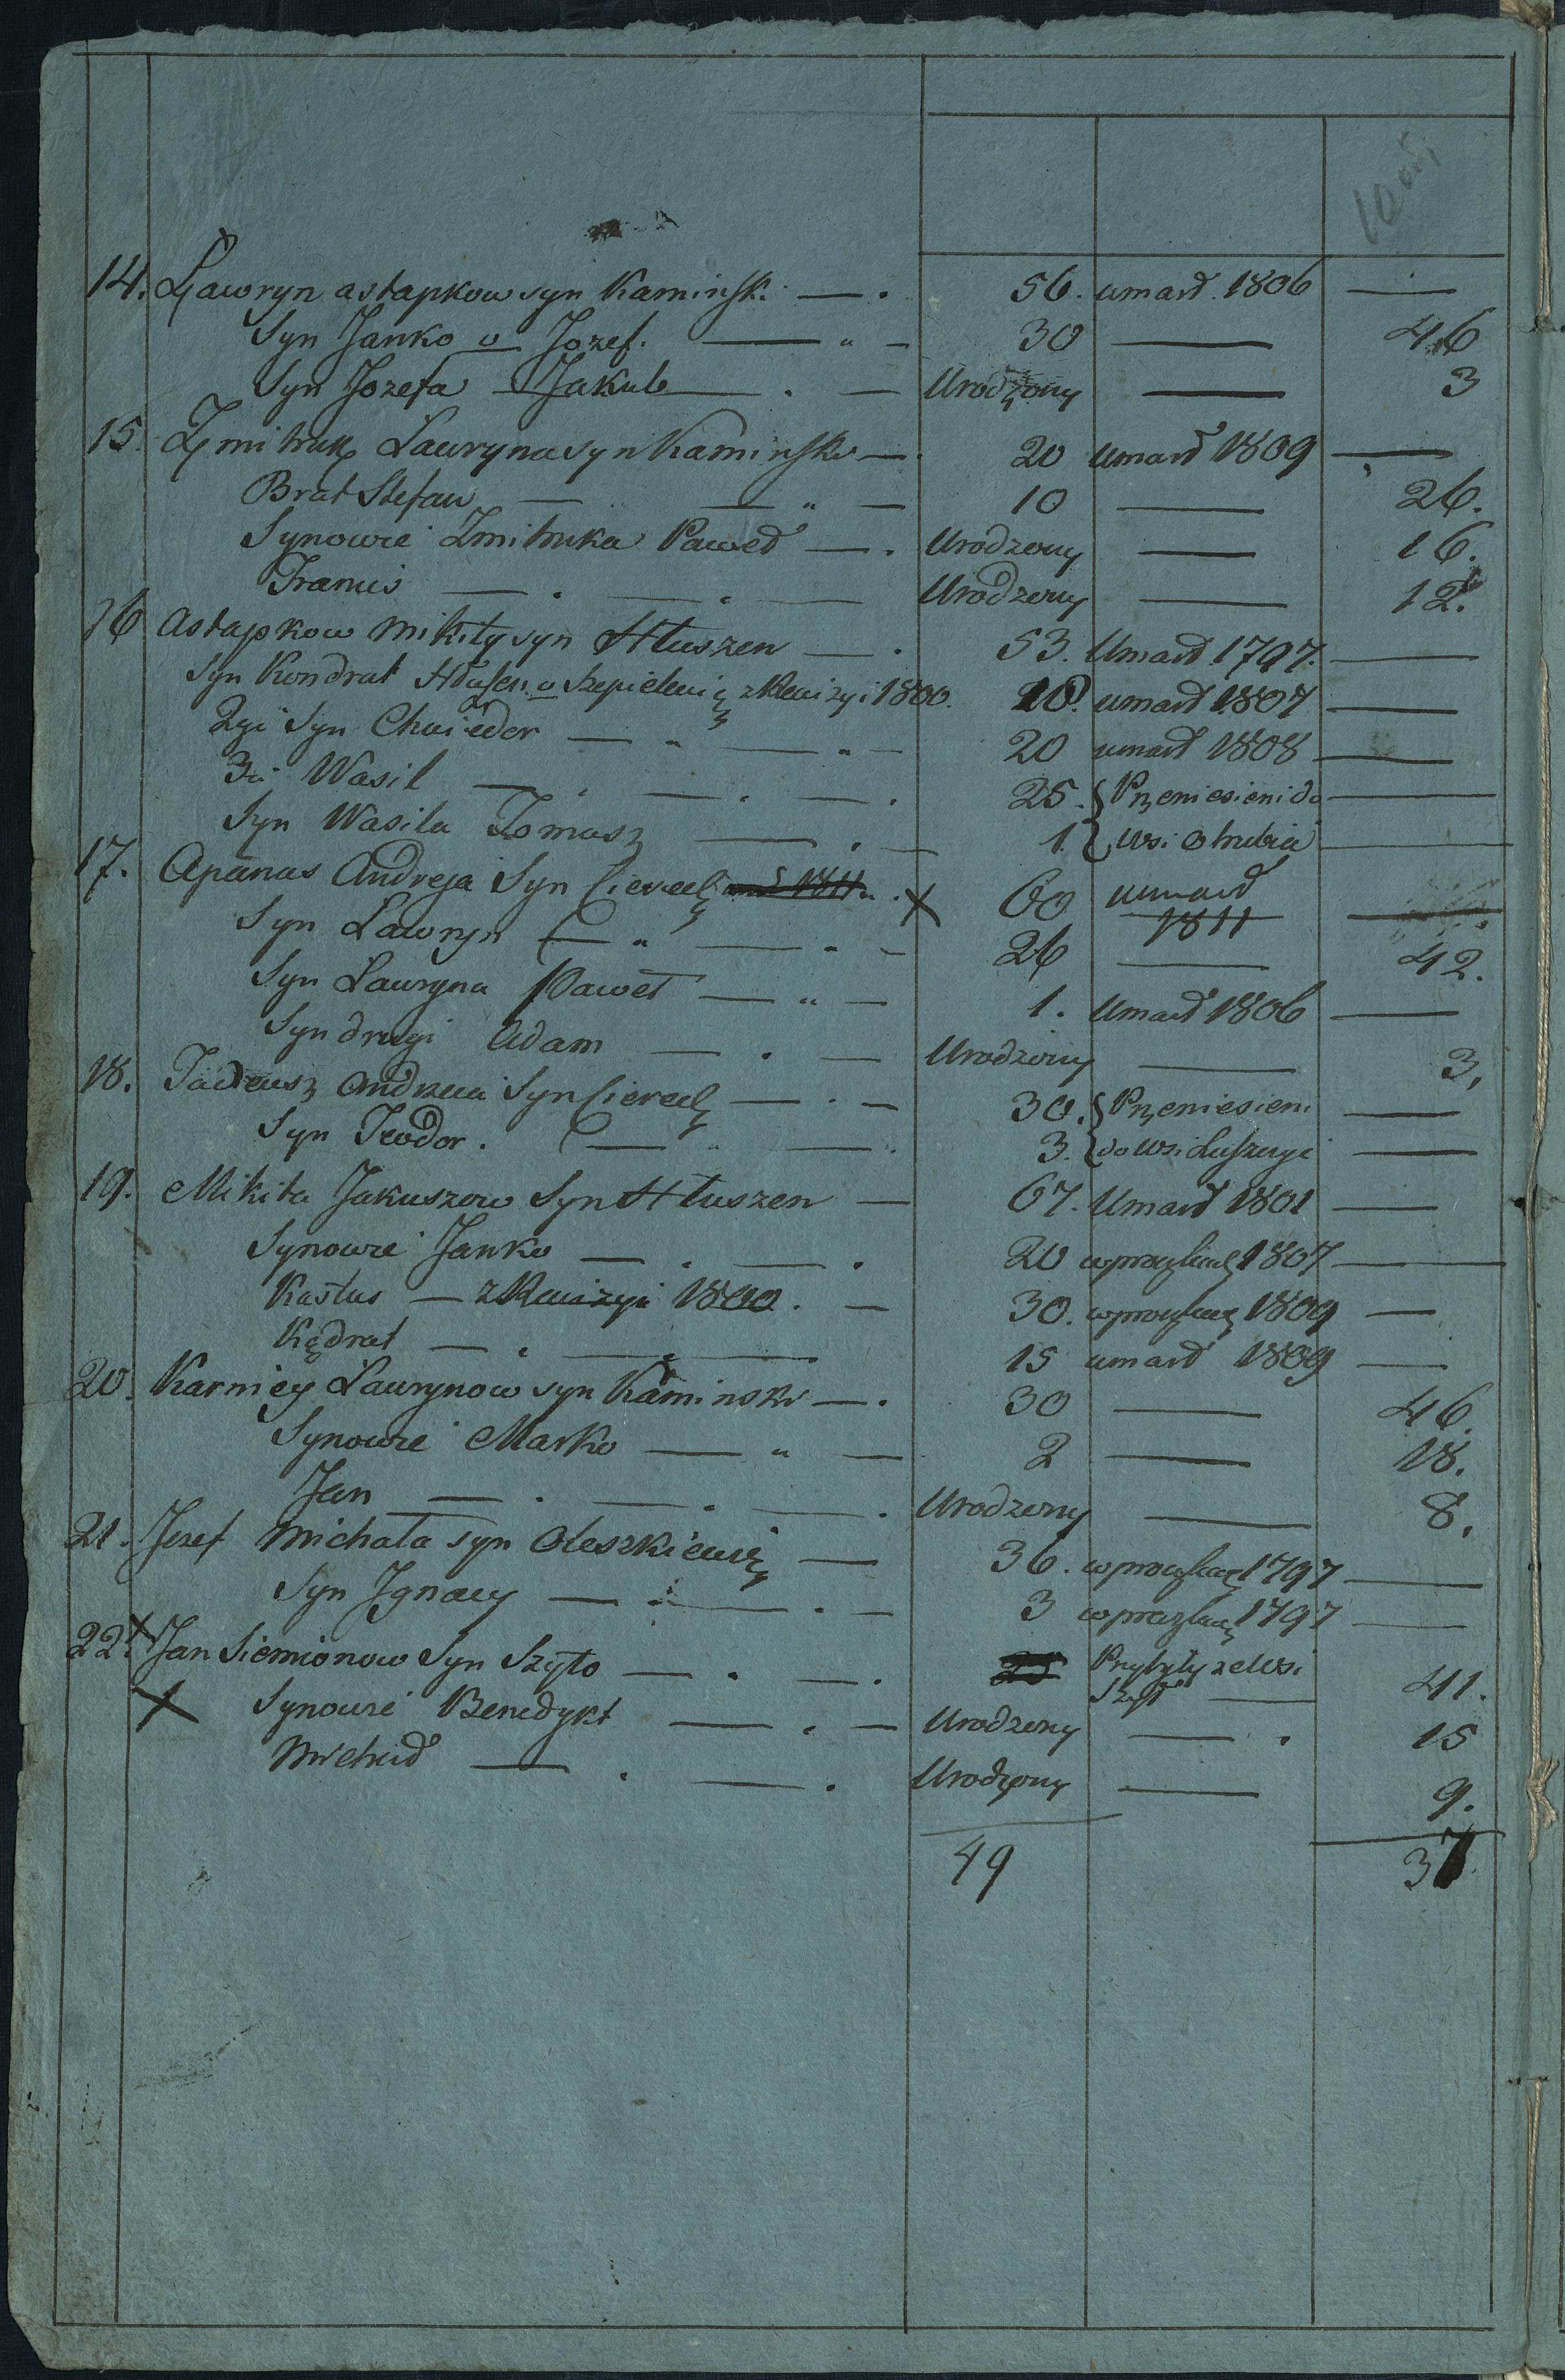 14. Ławryn astapkow syn Kaminsk. — . 56. umarł. 1806 —
Syn Janko v Jozef. — " — 30 — 46
Syn Jozefa Jakub — . — Urodzony — 3
15. Zmitruk Ławryna syn Kaminski — 20 umarł 1809 —
Brat Stefan — — " — 10 — 26.
Synowie Zmitruka Paweł — . Urodzony — 16.
Franuś — . — . — Urodzony — 12.
16 astapkow Mikity syn Hłuszen — . 53. Umarł 1797. —
Syn Kondrat Hłuszen v Szepielewicz z Rewizyi 1800. 10. umarł 1807 —
2gi Syn Chwiedor — " — " — 20 umarł 1808 —
3ci Wasil — . — . — . 25. { Przeniesieni do —
Syn Wasila Tomasz — . — 1. { wsi —
17. Apanas Andreja Syn . X 60 umarł 1811 —
Syn Lawryn — " — " — 26 — 42.
Syn Lawryna Paweł — " — 1. Umarł 1806 —
Syn drugi Adam — . — Urodzony — 3.
18. Tadeusz Andrzeia Syn — . — 30. { Przeniesieni —
Syn Teodor. — " — " 3. { do wsi —
19. Mikita Jakuszow Syn Hłuszen — 67. Umarł 1801 —
Synowie Janko — . — . 20 1807 —
Kastus — z Rewizyi 1800. — 30. 1809 —
Kądrat — . — . — 15 umarł 1809 —
20. Karniey Laurynow syn Kaminski — . 30 — 46.
Synowie Marko — " — 2 — 18.
Jan — . — . — . Urodzony — 8.
21. Jozef Michała syn Oleszkiewicz — 36. 1797 —
Syn Ignacy — . — . — 3 1797 —
22. X Jan Siemionow Syn Szyło — . — . 25 Przybyły ze Wsi — 41.
X Synowie Benedykt — . — Urodzony — . 15
Michał — . — . Urodzony — 9.
49 37